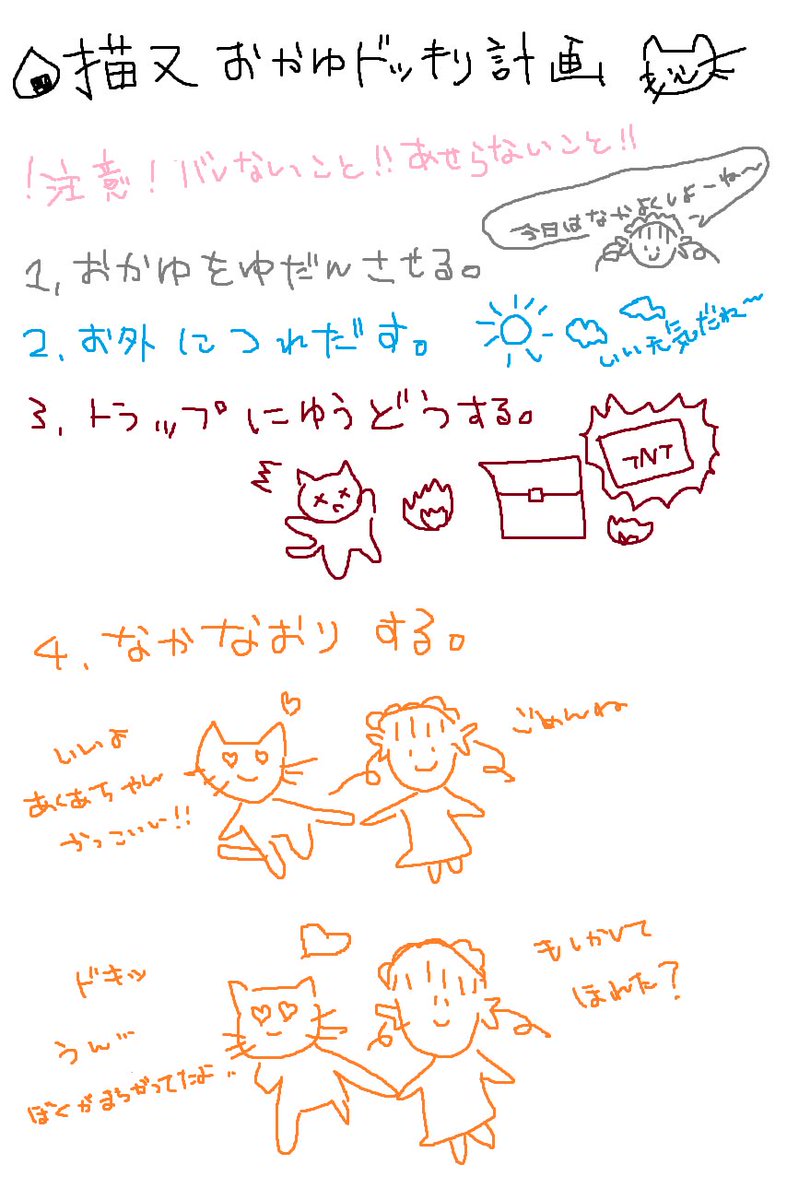 描又おかゆドッキリ計画
!注意!バレないこと!!あせらないこと!!
今日はなかよくしよーね~
1,おかゆをゆだんさせる。
2.お外につれだす。
いい天気だね~
3.トラップにゆうどうする。
TNT
4.なかなおりする。
ごめんね
いいよ
あくあちゃん
かっこいい!!
もしかして
ほれた?
ドキッ
うん…
ぼくがまちがってたよ..